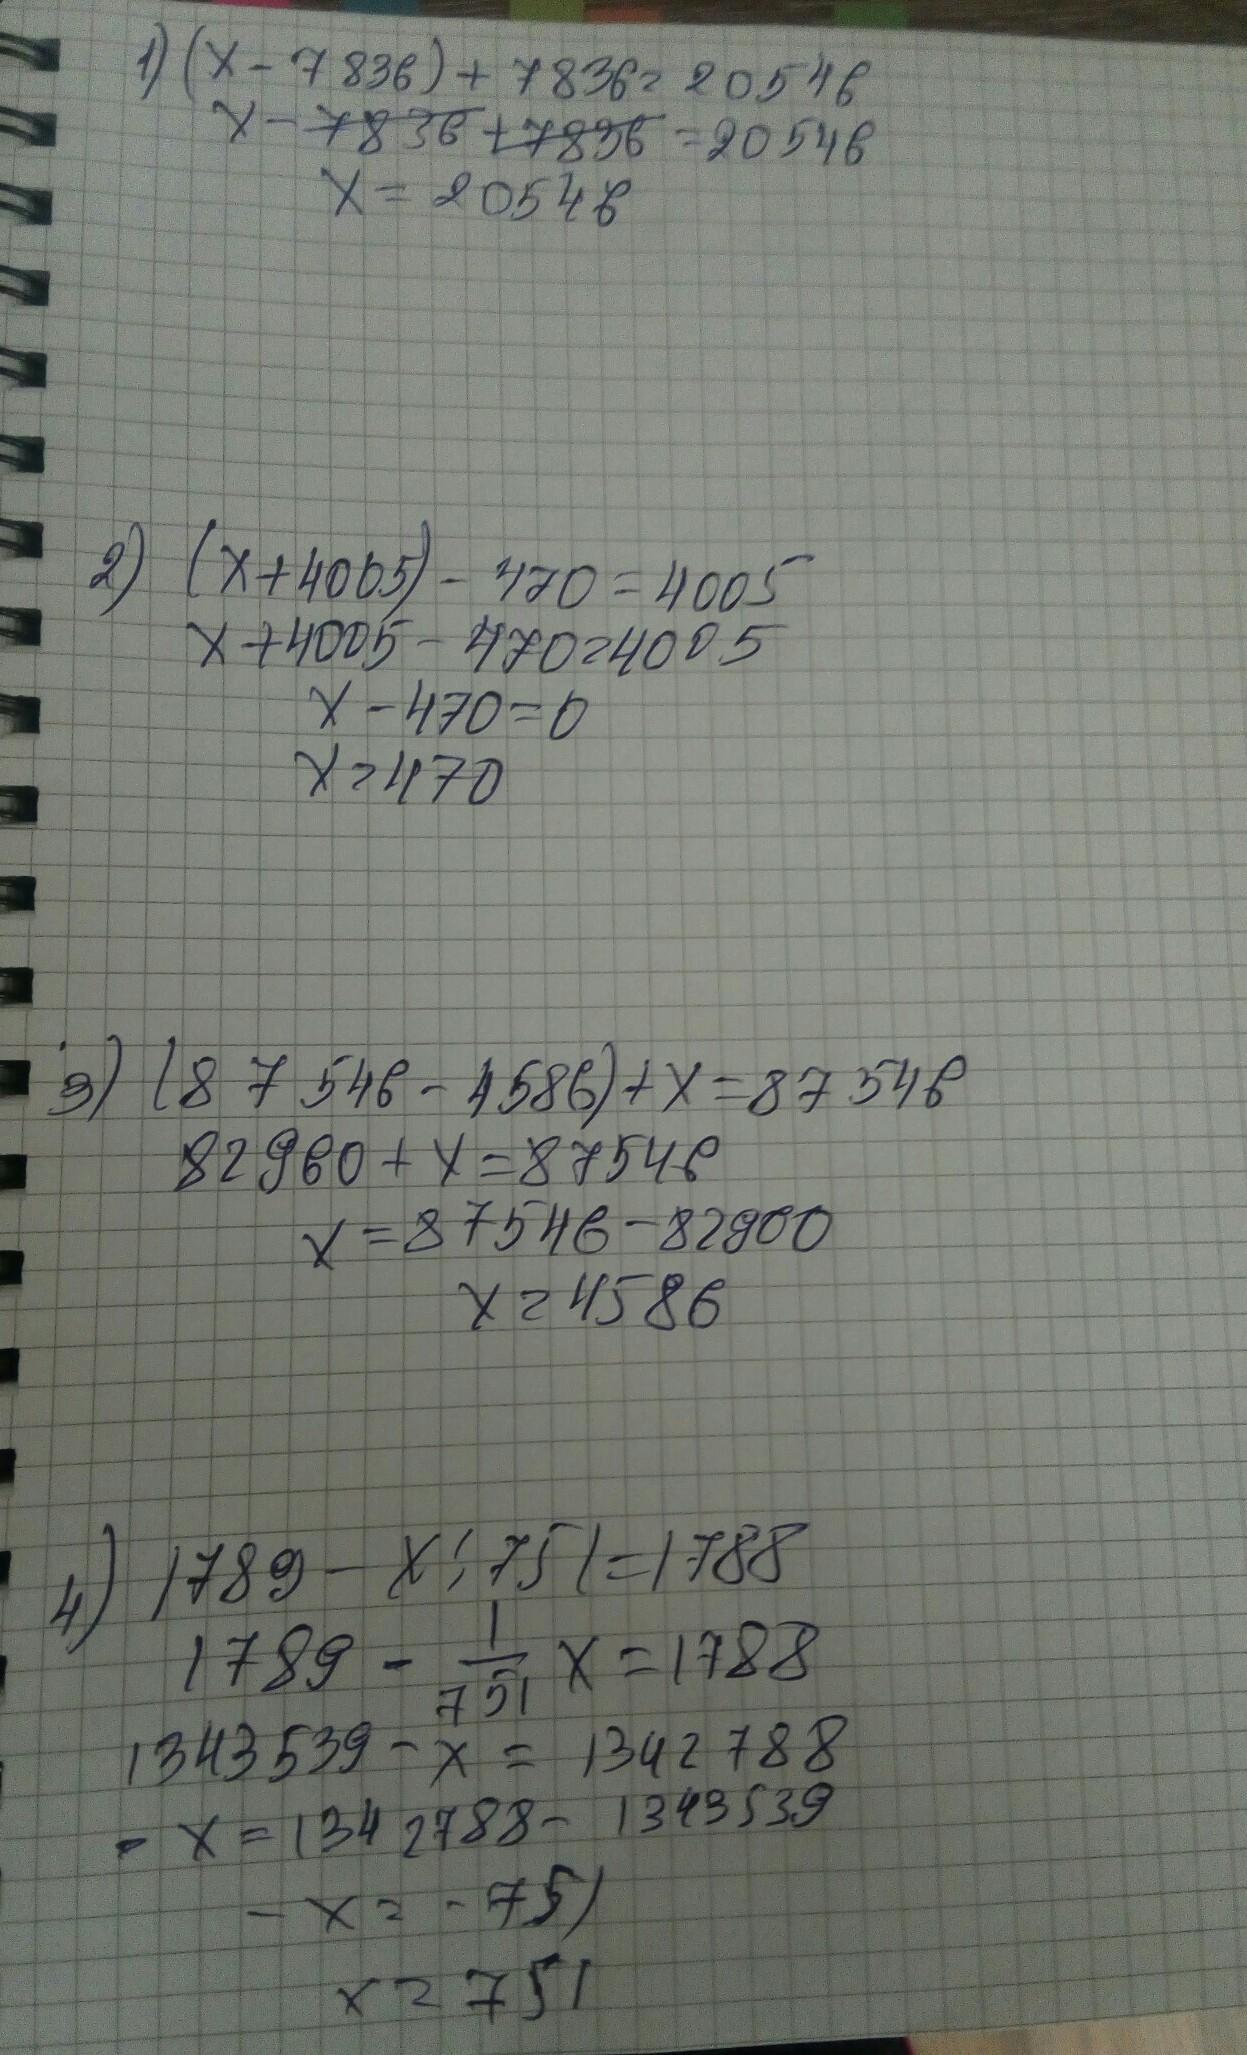 1) (x - 7836) + 7836 = 20546
x - 7836 + 7836 = 20546
x = 20546
2) (x + 4005) - 470 = 4005
x + 4005 - 470 = 4005
x - 470 = 0
x = 470
3) (87546 - 4586) + x = 87546
82960 + x = 87546
x = 87546 - 82900
x = 4586
4) 1789 - x : 751 = 1788
1789 - 1/751 x = 1788
1343539 - x = 1342788
- x = 1342788 - 1343539
- x = - 751
x = 751